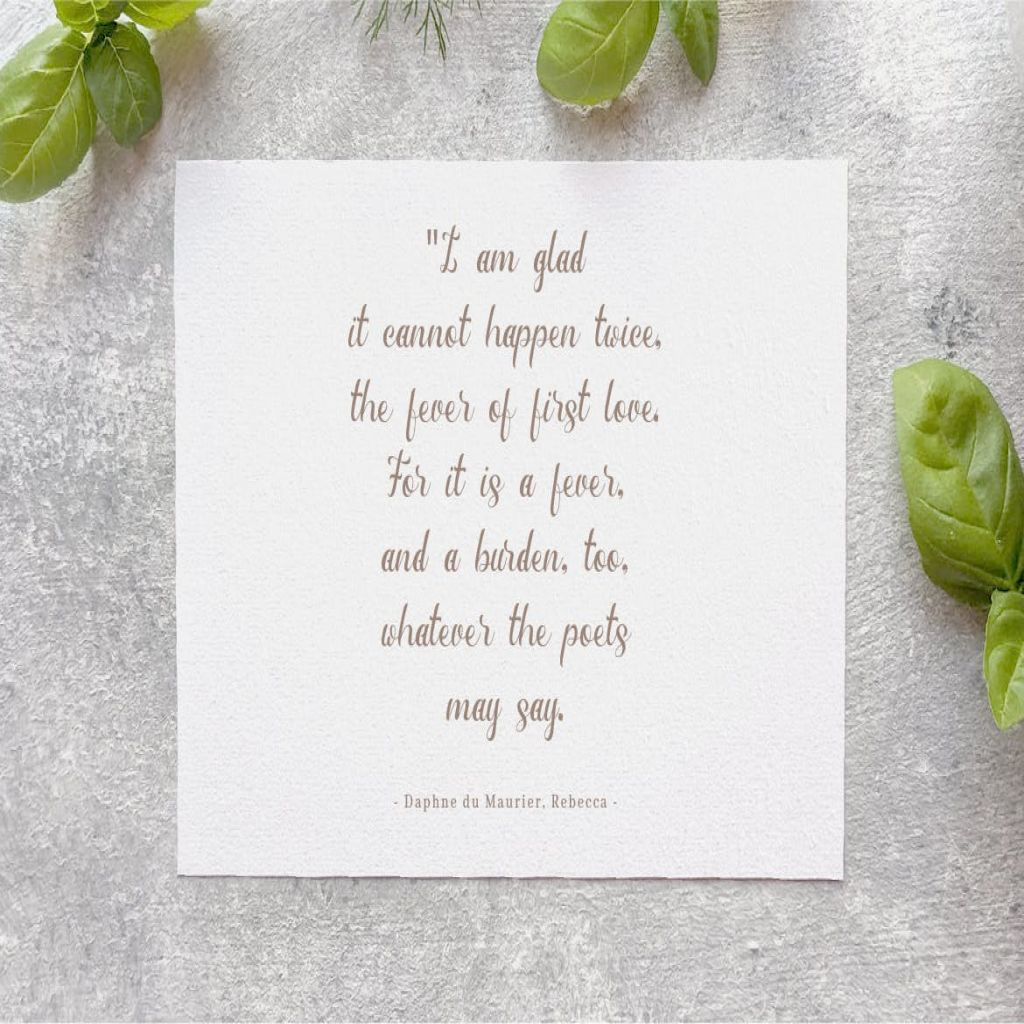 "I am glad
it cannot happen twice,
the fever of first love.
For it is a fever,
and a burden, too,
whatever the poets
may say.
- Daphne du Maurier, Rebecca -